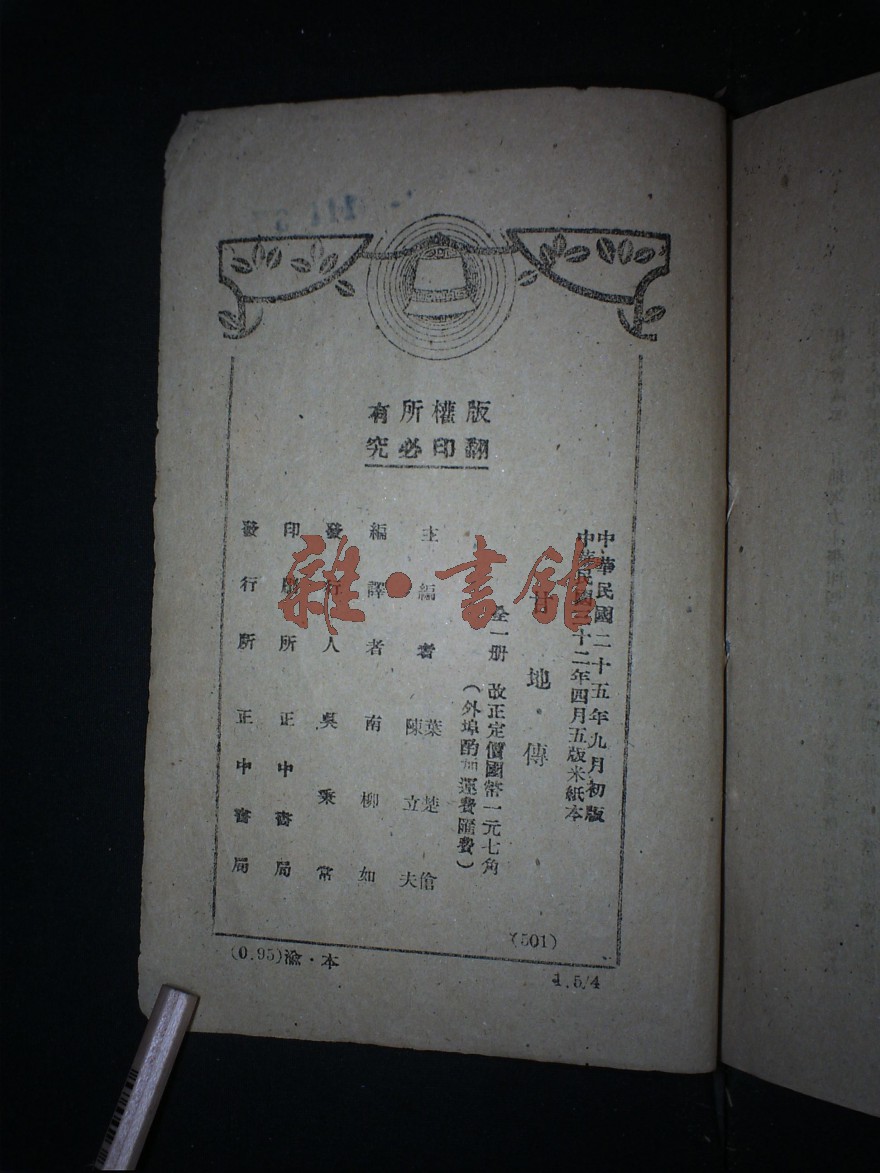 版權所有
翻印必究
中華民國二十五年九月初版
中華民國三十二年四月五版米紙本
甘地傳
全一册 改正定價國幣一元七角
(外埠酌加運費匯費)
主編者 葉楚傖
陳立夫
編譯者 南柳如
發行人 吳秉常
印刷所 正中書局
發行所 正中書局
(501)
(0.95)渝·本
4.5/4
雜·書館